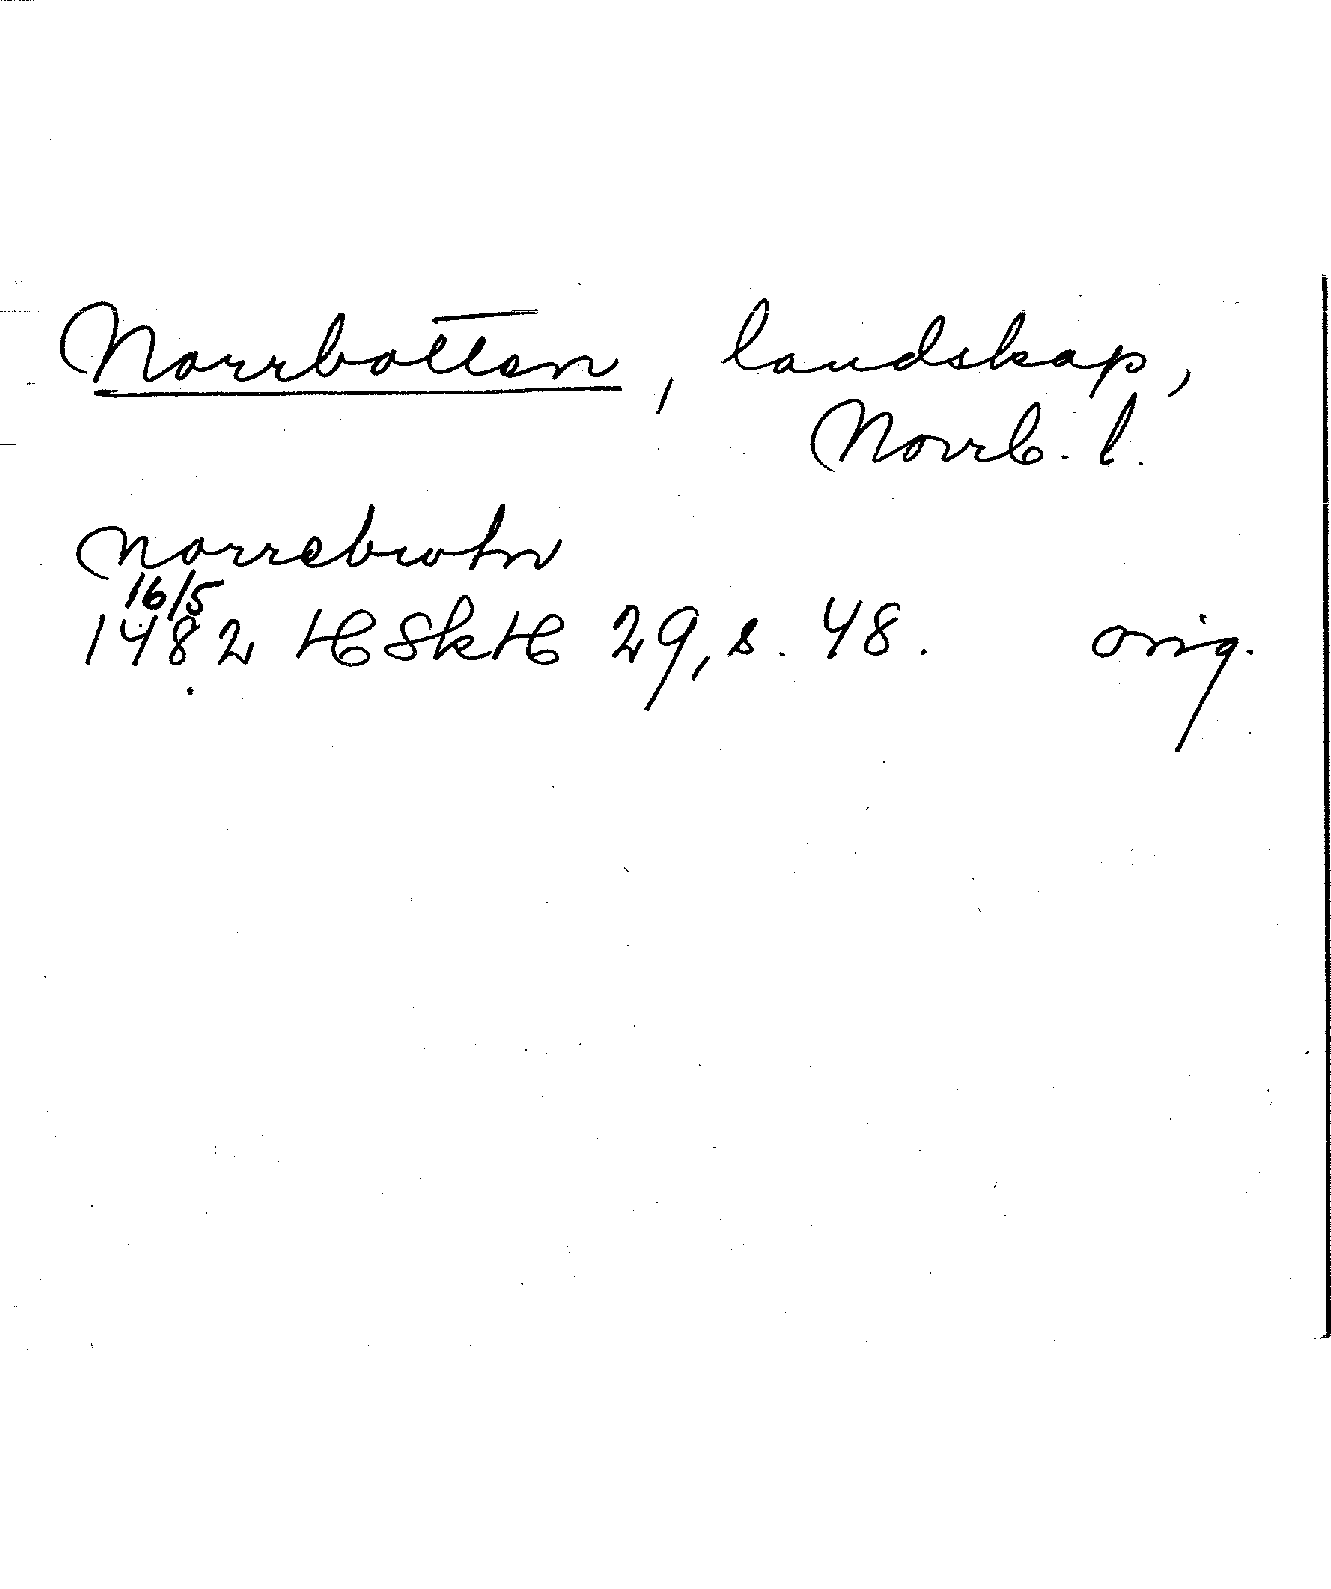 Norrbotten, landskap,
Norrb. l.
Norrebotn
16/5
1482 HSkH 29, s. 48. orig.